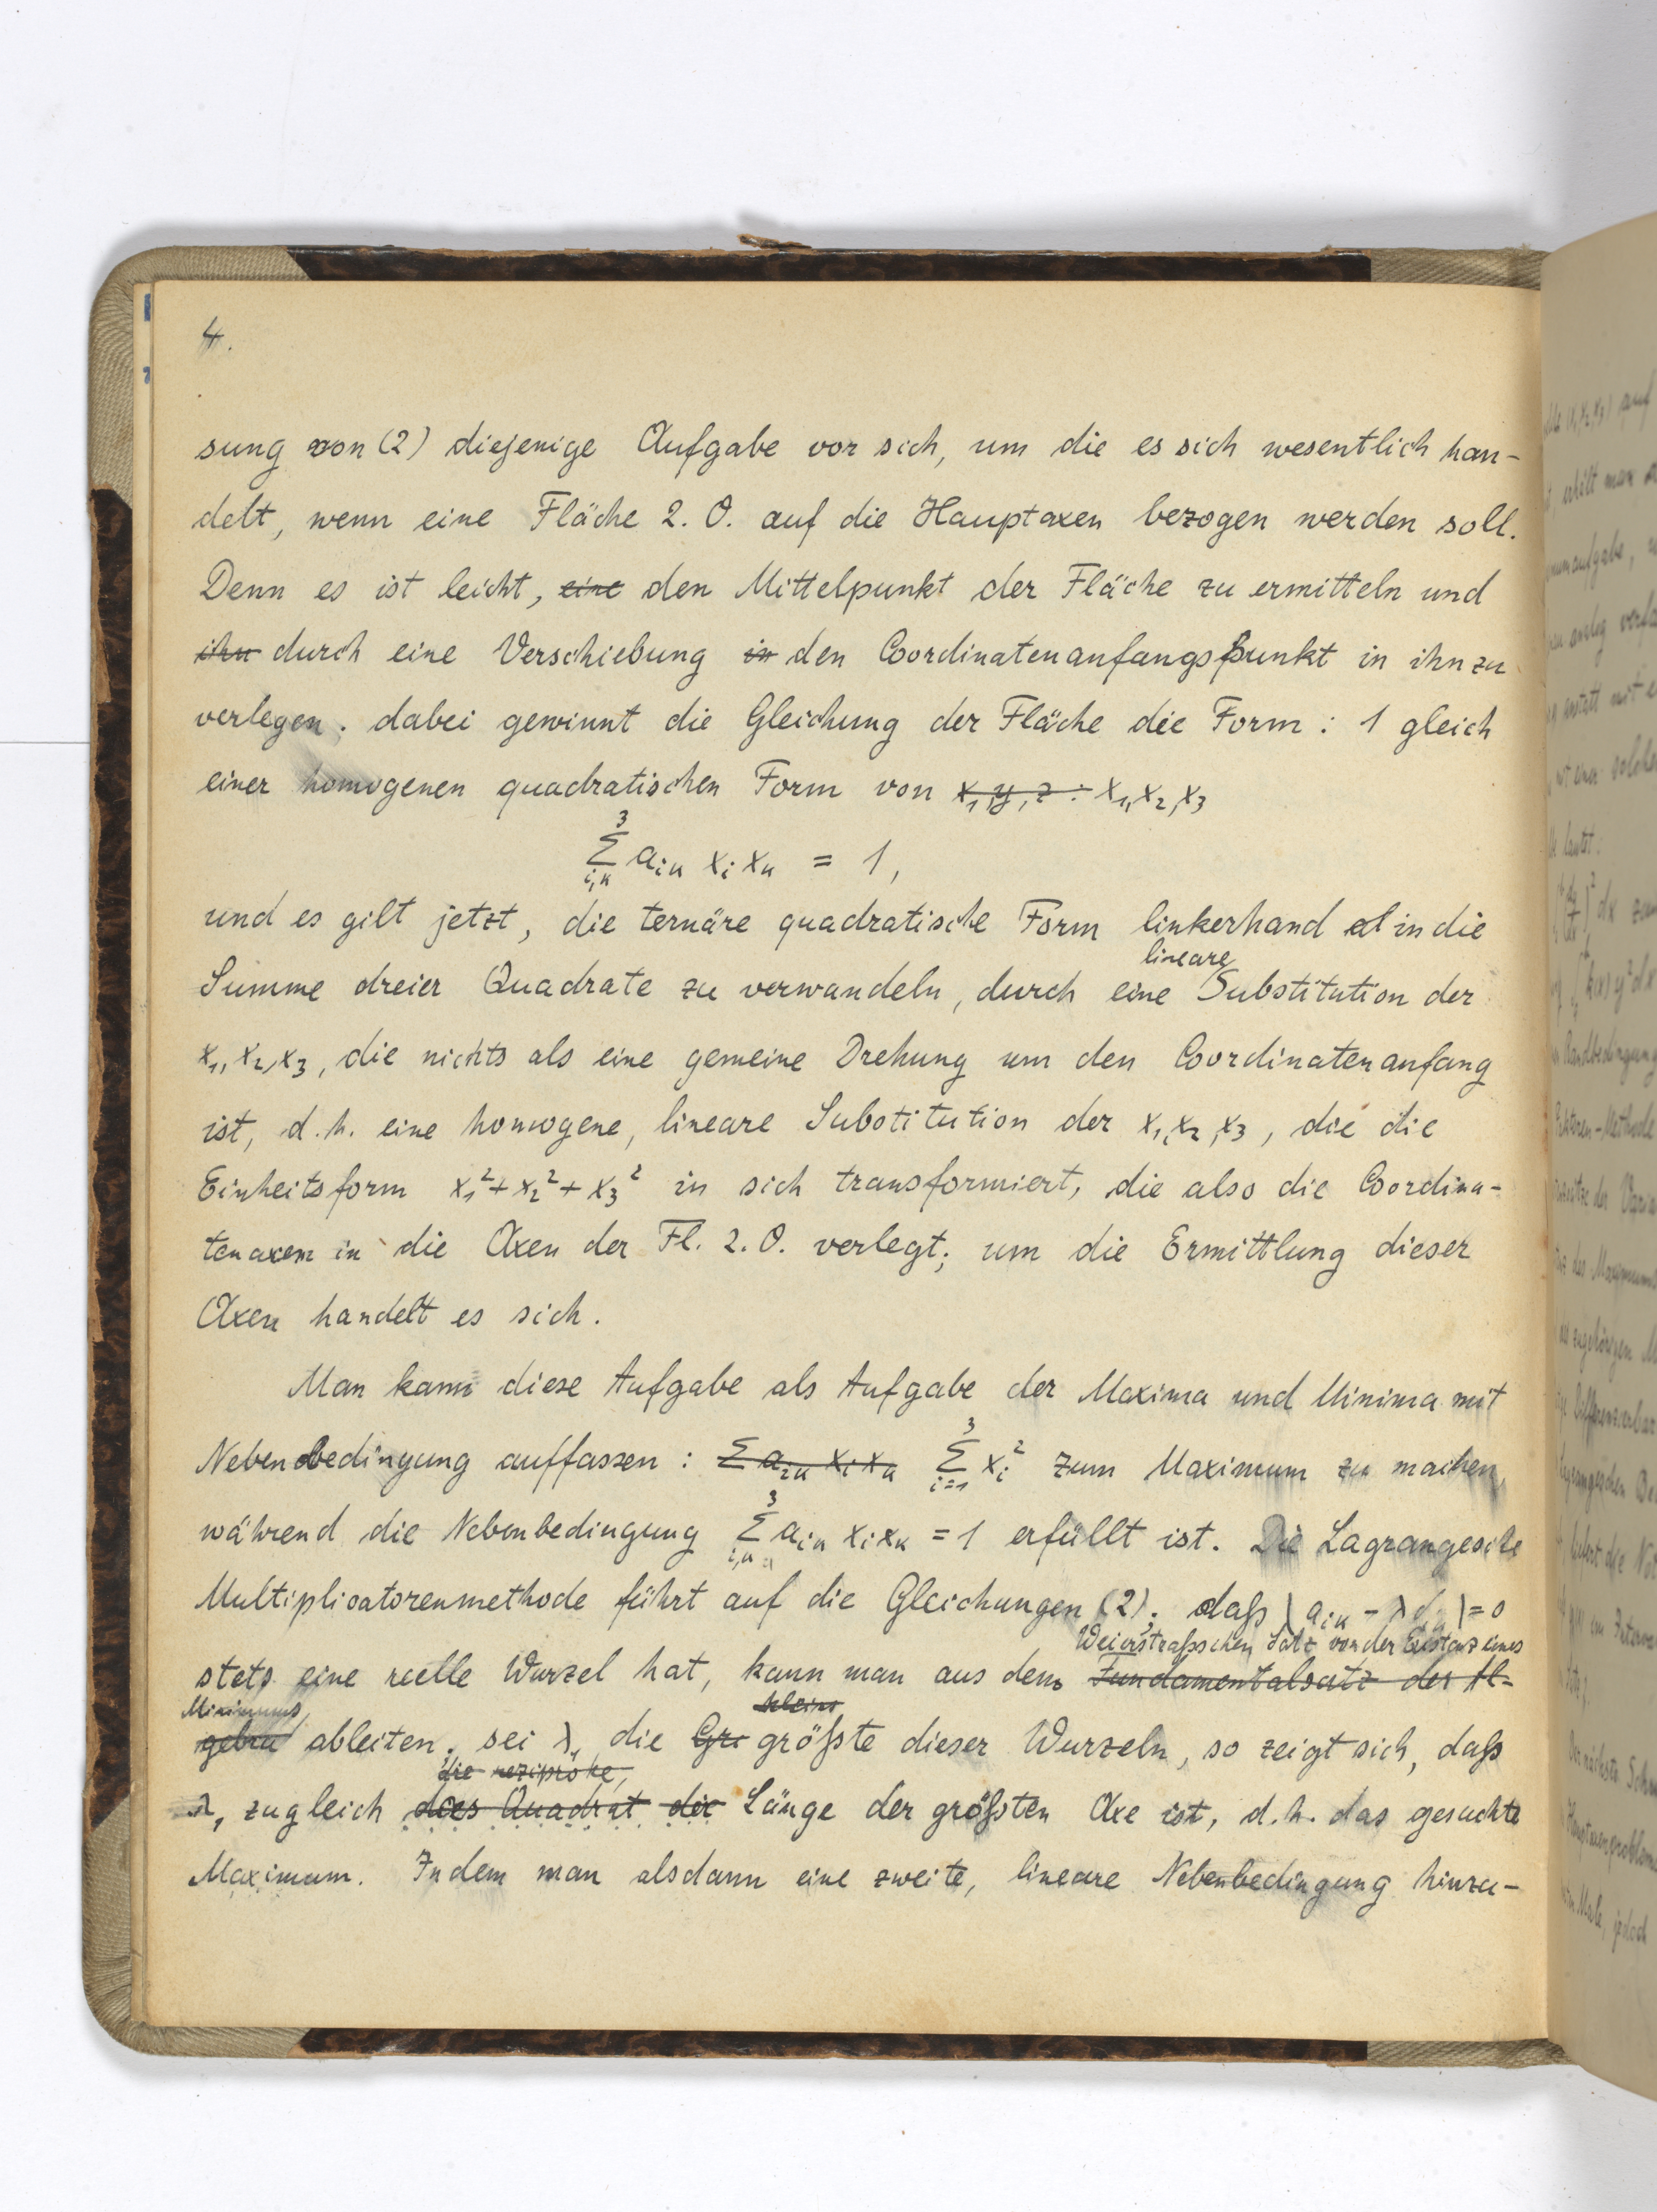 4.
sung von (2) diejenige Aufgabe vor sich, um die es sich wesentlich han-
delt, wenn eine Fläche 2. O. auf die Hauptaxen bezogen werden soll.
Denn es ist leicht, eine den Mittelpunkt der Fläche zu ermitteln und
ihn durch eine Verschiebung in den Coordinatenanfangspunkt in ihn zu
verlegen. dabei gewinnt die Gleichung der Fläche die Form : 1 gleich
einer homogenen quadratischen Form von x, y, z : x₁, x₂, x₃
3
Σ aᵢₖ xᵢ xₖ = 1,
i,k
und es gilt jetzt, die ternäre quadratische Form linkerhand in die
lineare
Summe dreier Quadrate zu verwandeln, durch eine Substitution der
x₁, x₂, x₃, die nichts als eine gemeine Drehung um den Coordinatenanfang
ist, d.h. eine homogene, lineare Substitution der x₁, x₂, x₃, die die
Einheitsform x₁² + x₂² + x₃² in sich transformiert, die also die Coordina-
tenaxen in die Axen der Fl. 2. O. verlegt; um die Ermittlung dieser
Axen handelt es sich.
Man kann diese Aufgabe als Aufgabe der Maxima und Minima mit
Nebenbedingung auffassen : Σ aᵢₖ xᵢ xₖ Σ³ᵢ₌₁ xᵢ² zum Maximum zu machen,
während die Nebenbedingung Σ³ᵢ,ₖ aᵢₖ xᵢ xₖ = 1 erfüllt ist. Die Lagrangesche
Multiplicatorenmethode führt auf die Gleichungen (2). daß | aᵢₖ - λ | = 0
Weierstraßschen Satz von der Existenz eines
stets eine reelle Wurzel hat, kann man aus dem Fundamentalsatz der Al-
Minimums kleins
gebra ableiten. sei λ₁ die Gr größte dieser Wurzeln, so zeigt sich, daß
die reziproke,
λ₁ zugleich das Quadrat die Länge der größten Axe ist, d.h. das gesuchte
Maximum. Indem man alsdann eine zweite, lineare Nebenbedingung hinzu-